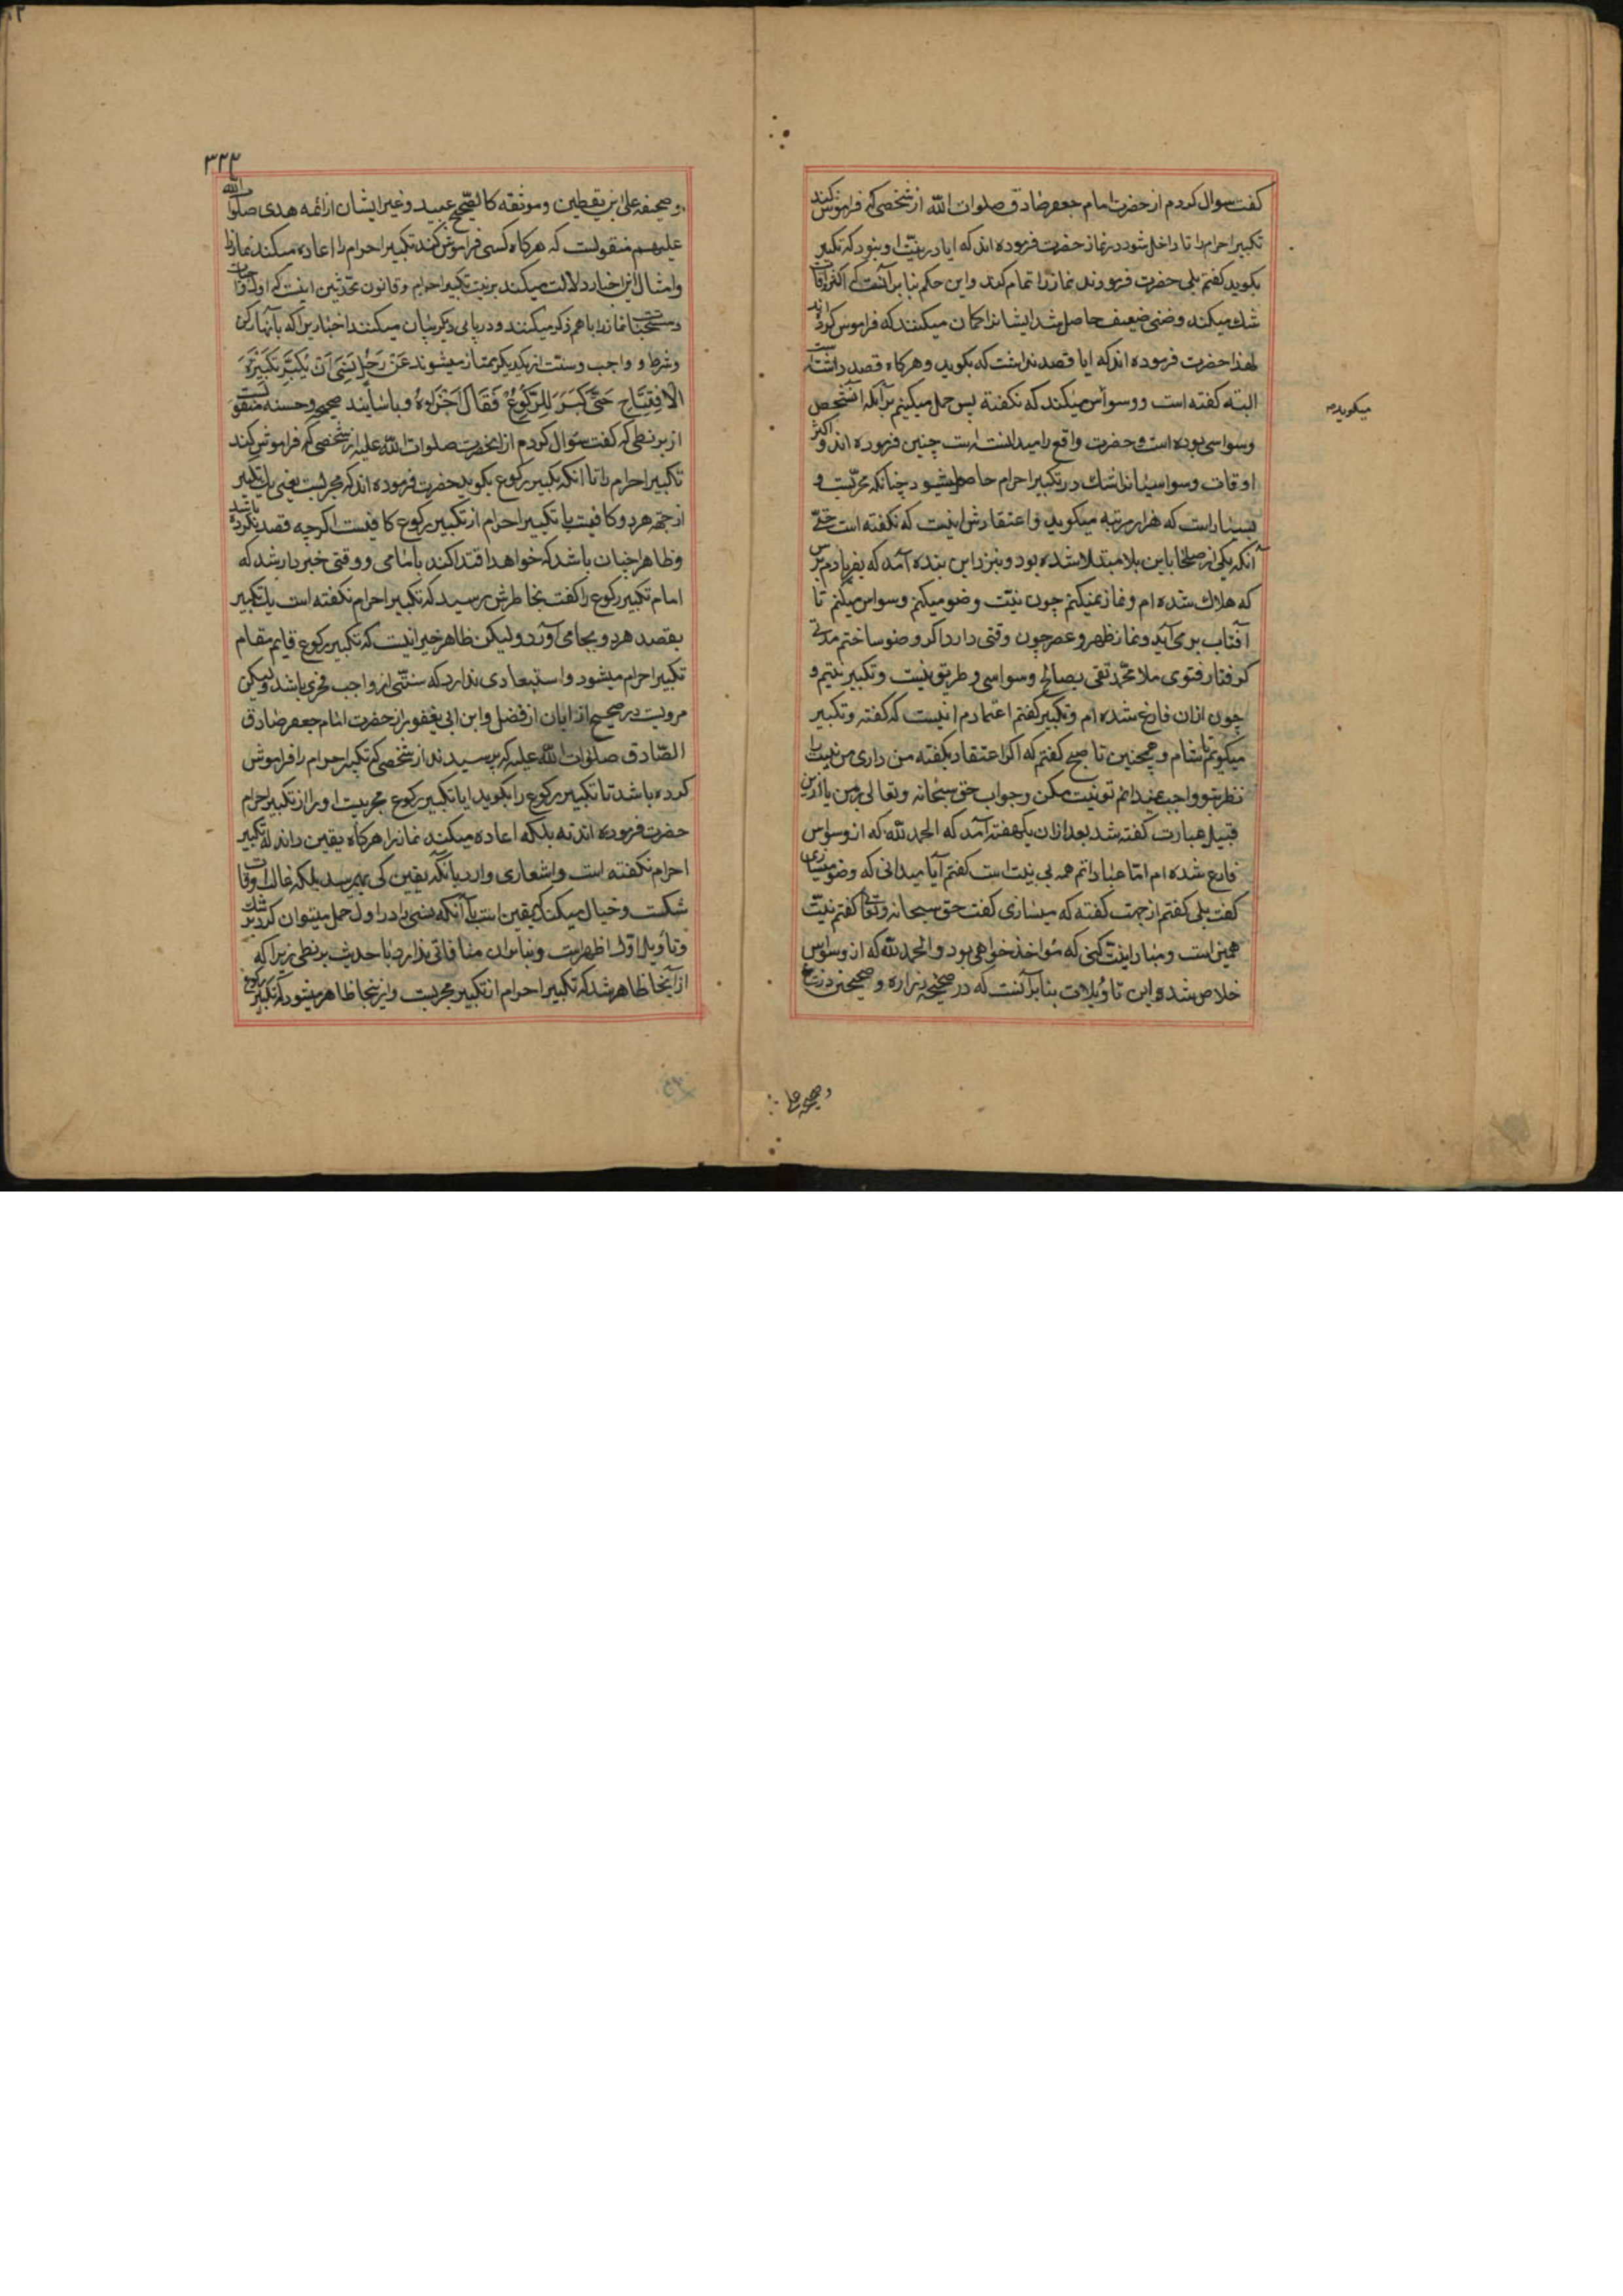 كفت سوال كردم از حضرت امام جعفر صادق صلوات الله از شخصى كه فراموش كند
تكبير احرام را تا داخل شود در نماز حضرت فرموده اند كه ايا در نيّت او نبود كه تكبير
بكويد كفتم بلى حضرت فرمودند نماز را تمام كند و اين حكم بنا بر آنست كه اكثر اوقات
شك ميكند و ضنى ضعيف حاصل شد ايشانرا كمان ميكنند كه فراموش كرده اند
لهذا حضرت فرموده اند كه ايا قصد نداشت كه بكويد و هركاه قصد داشته است
البته كفته است و وسواس ميكند كه نكفته پس حمل ميكنيم بر آنكه آن شخص
وسواسى بوده است و حضرت واقع را ميدانسته است چنين فرموده اند و اكثر
اوقات وسواسيانرا شك در تكبير احرام حاصل ميشود چنانكه مجرّبست و
بسيار است كه هزار مرتبه ميكويد و اعتقادش اينست كه نكفته است حتّى
آنكه يكى از صلحا باين بلا مبتلا شده بود و بنزد اين بنده آمد كه بفريادم برس
كه هلاك شده ام و نماز نميكنم چون نيّت وضو ميكنم وسواس ميكنم تا
آفتاب بر مى آيد و نماز ظهر و عصر چون وقتى دارد اكر وضو ساختم مدتى
كرفتار فتوى ملا محمّد تقى بصالح وسواسى و طريق نيست و تكبير نيتيم و
چون ازان فارغ شده ام و تكبير كفتم اعتمادم انيست كه كفته و تكبير
ميكويم تا شام و همچنين تا صبح كفتم كه اكر اعتقاد بكفته من دارى من نيت را
نظر بتو واجب نميدانم تو نيت مكن و جواب حق سبحانه و تعالى بر من با ازين
قبيل عبارت كفته شد بعد ازان يكهفته آمد كه الحمد لله كه از وسواس
فارغ شده ام امّا عباداتم همه بى نيت است كفتم آيا ميدانى كه وضو ميسازى
كفت بلى كفتم از جهت كفته كه ميسازى كفت حق سبحانه و تعالى كفتم نيّت
همين است و مبادا نيت كنى كه مؤاخذ خواهى بود و الحمد لله كه از وسواس
خلاص شد و اين تاويلات بنا بر آنست كه در صحيحه زراره و صحيحين ذريح
ميكويد
و صحيحه على
٣٢٣
و صحيحه على ابن يقطين و موثقه كالصّحيح عبيد و غير ايشان از ائمه هدى صلوات الله
عليهم منقولست كه هركاه كسى فراموش كند تكبير احرام را اعاده ميكند نماز را
و امثال اين اخبار دلالت ميكند بر نيت تكبير احرام و قانون محدّثين اينست كه اول واجبات
و مستحبات نماز را باهم ذكر ميكنند و در بابى ديكر بيان ميكنند اخباريرا كه بآنها ركن
و شرط و واجب و سنّت از يكديكر ممتاز ميشوند عَنْ رَجُلٍ نَسِيَ اَنْ يُكَبِّرَ تَكْبِيرَةَ
الْاِفْتِتَاحِ حَتَّى كَبَّرَ لِلرُّكُوعِ فَقَالَ اَجْزَأَهُ و باسانيد صحيحه و حسنه منقولست
از بزنطى كه كفت سؤال كردم از انحضرت صلوات الله عليه از شخصى كه فراموش كند
تكبير احرام را تا انكه تكبير ركوع بكويد حضرت فرموده اند كه مجزيست يعنى يك تكبير
از جهة هر دو كافيست يا تكبير احرام از تكبير ركوع كافيست اكرچه قصد نكرده باشد
و ظاهرا چنان باشد كه خواهد اقتدا كند بامامى و وقتى خبردار شد كه
امام تكبير ركوع را كفت بخاطرش رسيد كه تكبير احرام نكفته است يك تكبير
بقصد هر دو بجا مى آورد و ليكن ظاهر خبر انيست كه تكبير ركوع قايم مقام
تكبير احرام ميشود و استبعادى ندارد كه سنّتى از واجب مجزى باشد و ليكن
مرويست در صحيح از ابان از فضل و ابن ابى يعفور از حضرت امام جعفر صادق
الصّادق صلوات الله عليه كه پرسيدند از شخصى كه تكبير احرام را فراموش
كرده باشد تا تكبير ركوع را بكويد ايا تكبير ركوع مجزيست او را از تكبير احرام
حضرت فرموده اند نه بلكه اعاده ميكند نماز را هركاه يقين داند كه تكبير
احرام نكفته است و اشعارى دارد بانكه يقين كى بهم رسد بلكه غالب اوقات
شكست و خيال ميكند كه يقين است با آنكه نسى را در اول حمل ميتوان كرد بر شك
و تاويل اول اظهر است و بنا بران منافاتى ندارد با حديث بزنطى زيرا كه
از آنجا ظاهر شد كه تكبير احرام از تكبير مجزيست و ازينجا ظاهر ميشود كه تكبير ركوع